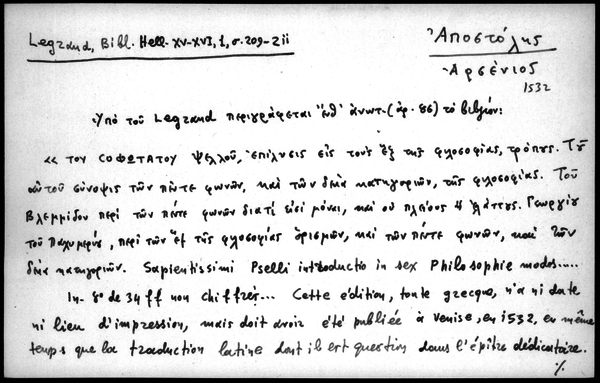 Legrand, Bibl. Hell. XV-XVI, 1, σ. 209-211
Ἀποστόλης
Ἀρσένιος
1532
Ὑπὸ τοῦ Legrand περιγράφεται ἔνθ' ἀνωτ. (ἀρ. 86) τὸ βιβλίον:
«Τοῦ σοφωτάτου Ψελλοῦ, ἐπίλυσις εἰς τοὺς ἓξ τῆς φιλοσοφίας τρόπους. Τοῦ
αὐτοῦ σύνοψις τῶν πέντε φωνῶν, καὶ τῶν δέκα κατηγοριῶν, τῆς φιλοσοφίας. Τοῦ
Βλεμμίδου περὶ τῶν πέντε φωνῶν διατί εἰσί μόναι, καὶ οὐ πλείους ἢ ἐλάττους. Γεωργίου
τοῦ Παχυμεροῦς, περὶ τῶν ἓξ τῆς φιλοσοφίας ὁρισμῶν, καὶ τῶν πέντε φωνῶν, καὶ τῶν
δέκα κατηγοριῶν. Sapientissimi Pselli introductio in sex Philosophie modos.....
In-8º de 34 ff non chiffrés... Cette édition, toute grecque, n'a ni date
ni lieu d'impression, mais doit avoir été publiée à Venise, en 1532, en même
temps que la traduction latine dont il est question dans l'épître dédicatoire.
%